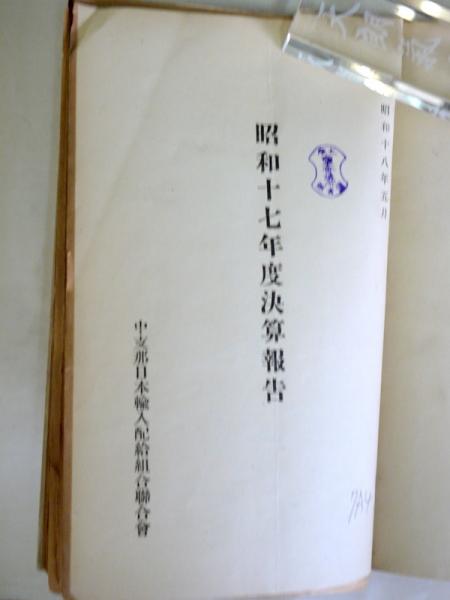 昭和十八年五月
昭和十七年度決算報告
中支那日本輸入配給組合聯合會
7A4